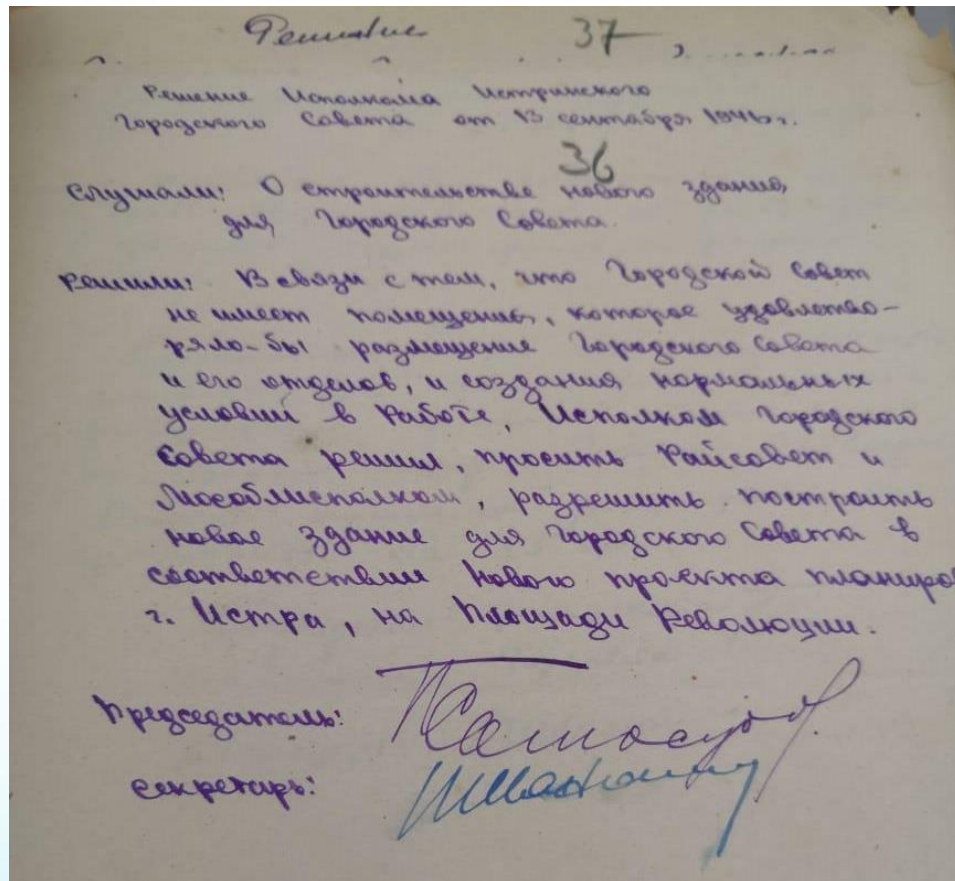 Решение 37
Решение Исполкома Истринского
Городского Совета от 13 сентября 1946 г.
36
Слушали: О строительстве нового здания
для Городского Совета.
Решили: В связи с тем, что Городской Совет
не имеет помещения, которое удовлетво-
ряло-бы размещение Городского Совета
и его отделов, и создания нормальных
условий в работе, Исполком Городского
Совета решил, просить Райсовет и
Мособлисполком, разрешить построить
новое здание для Городского Совета в
соответствии нового проекта планиро
г. Истра, на Площади Революции.
Председатель:
Секретарь: